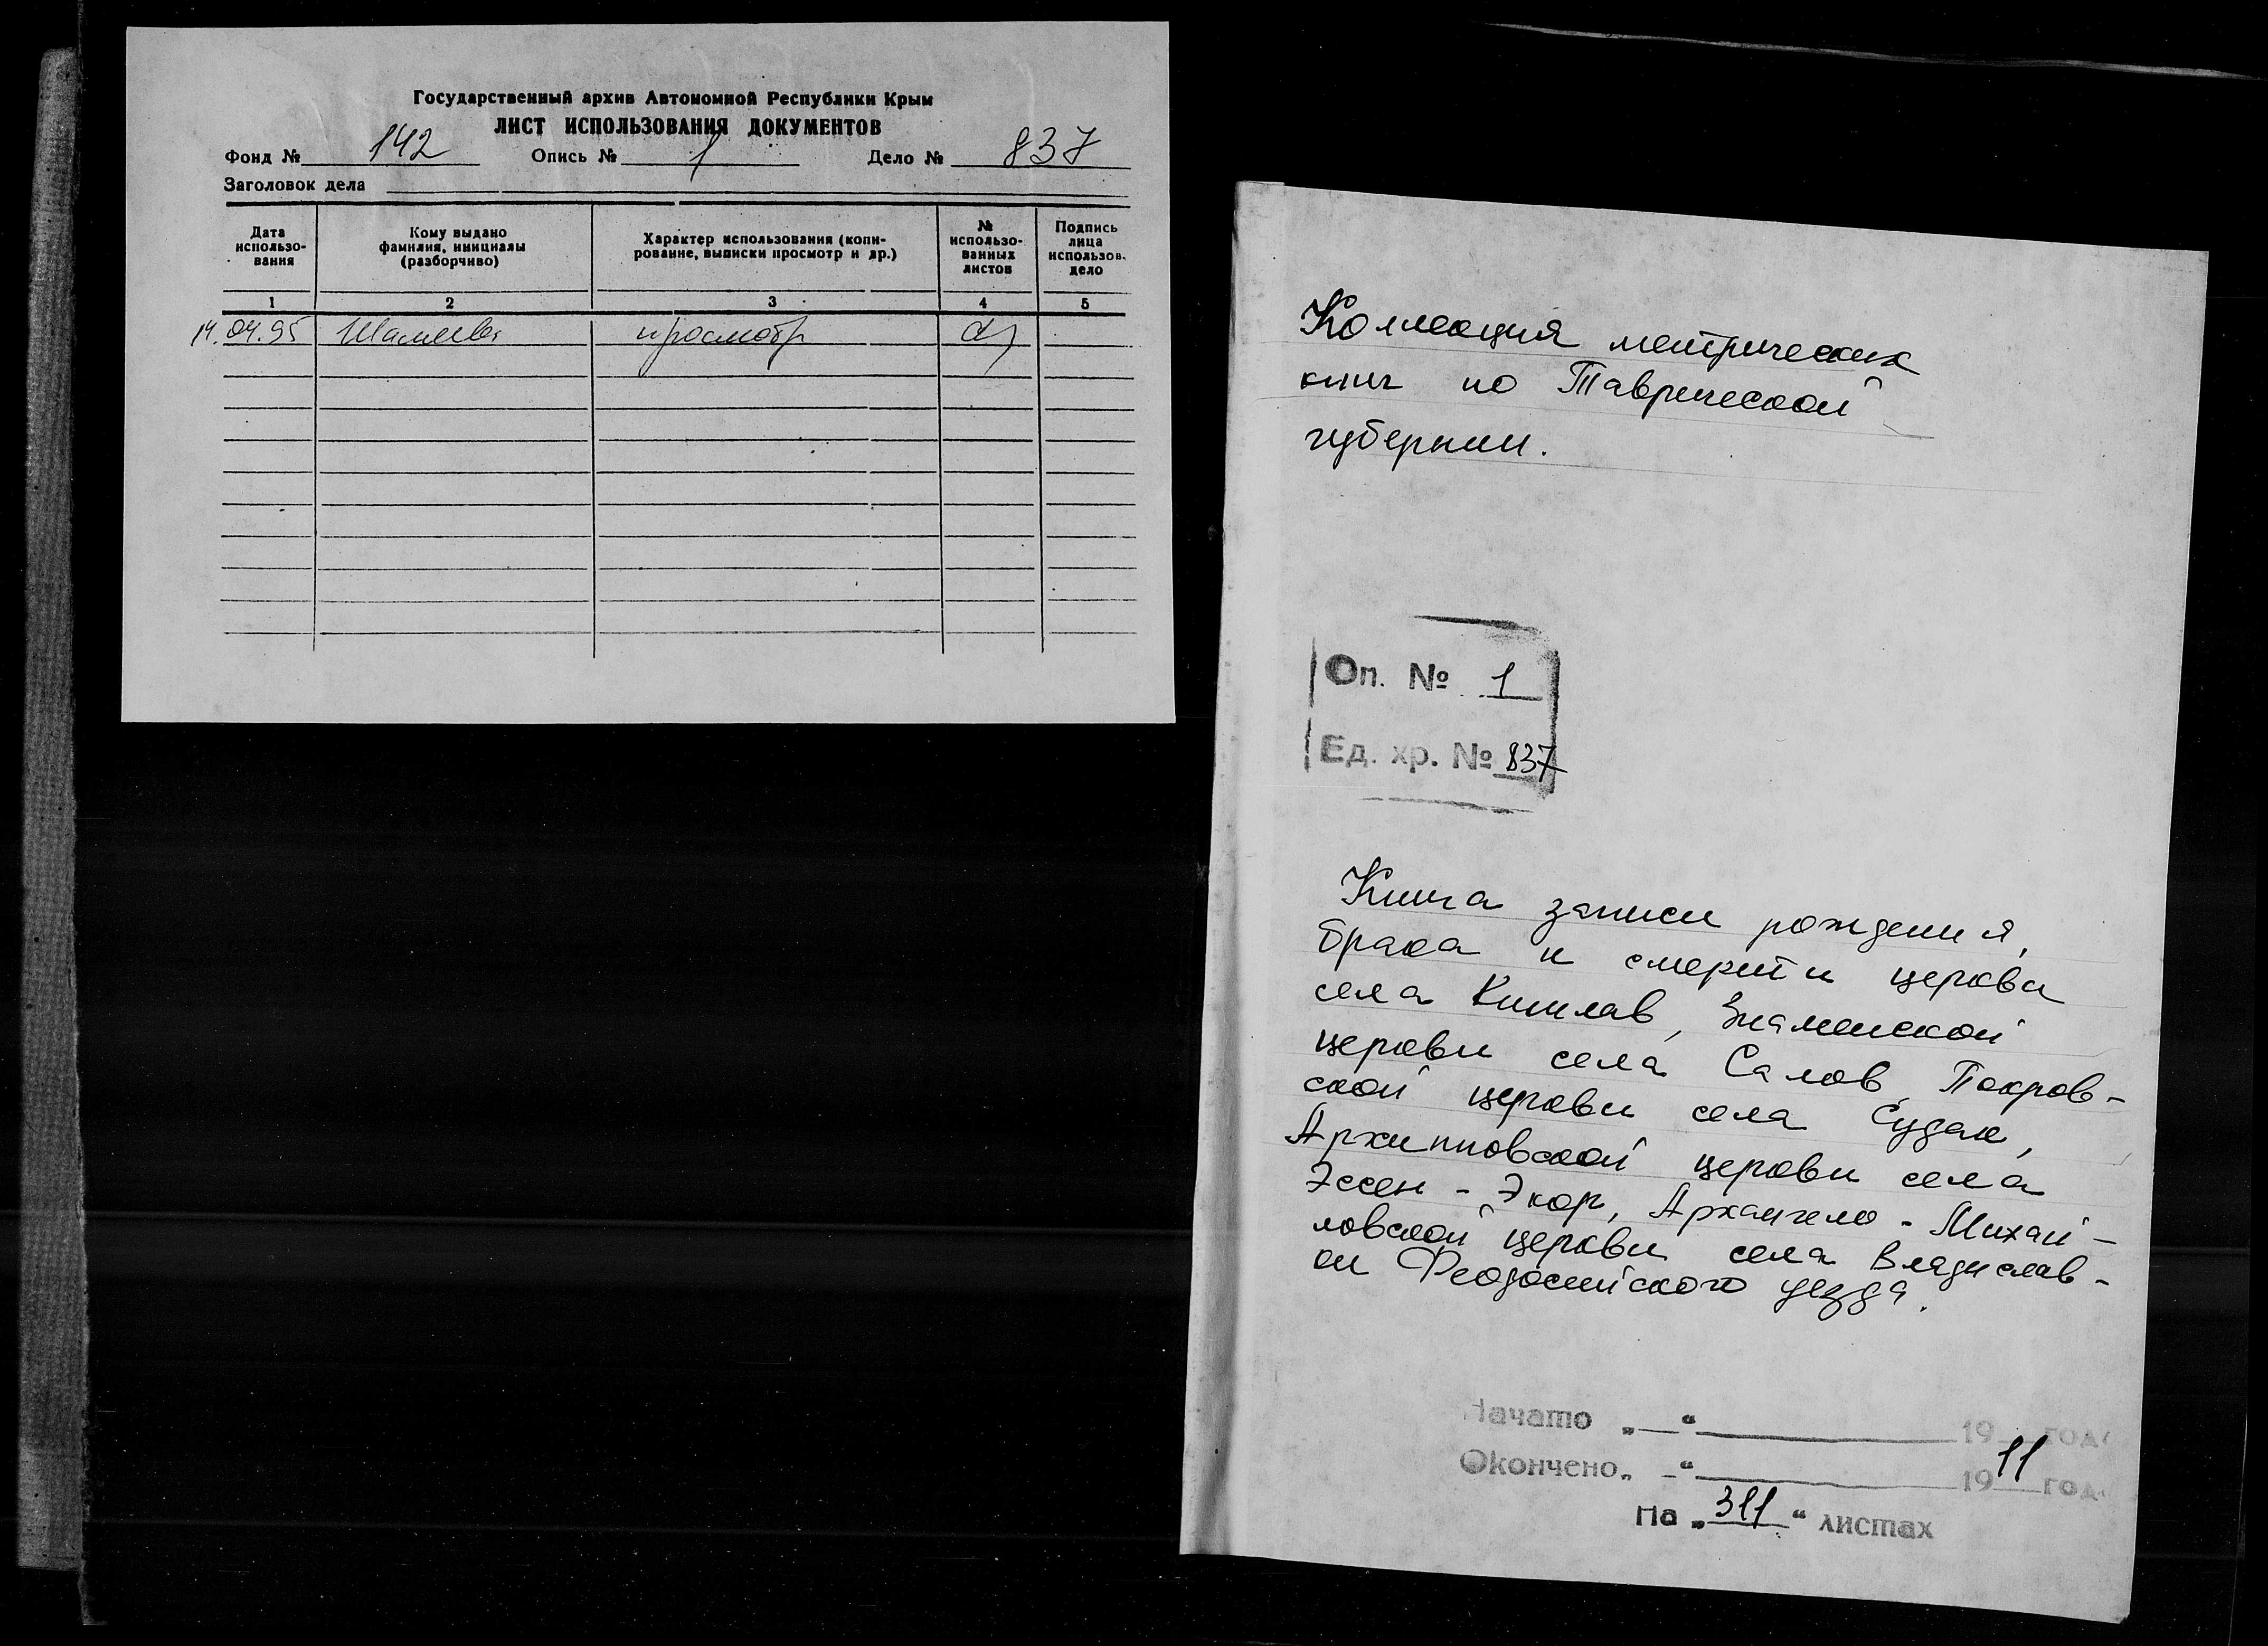 Государственный архив Автономной Республики Крым
ЛИСТ ИСПОЛЬЗОВАНИЯ ДОКУМЕНТОВ
Фонд № 142 Опись № 1 Дело № 837
Заголовок дела
Дата использо-вания
Кому выдано фамилия, инициалы (разборчиво)
Характер использования (копи-рование, выписки просмотр и др.)
№ использо-ванных листов
Подпись лица использов. дело
1 2 3 4 5
14.04.95 просмотр
Коллекция метрических
книг по Таврической
губернии.
Оп. № 1
Ед. хр. № 837
Книга записи рождения,
брака и смерти церкви
села Кишлав, Знаменской
церкви села Салов, Покров-
ской церкви села Судак,
Архипповской церкви села
Эссен - Экор, Архангело - Михай-
ловской церкви села Владислав-
ки Феодосийского уезда.
Начато „ “ 19 года
Окончено „ “ 1911 год
На „311“ листах